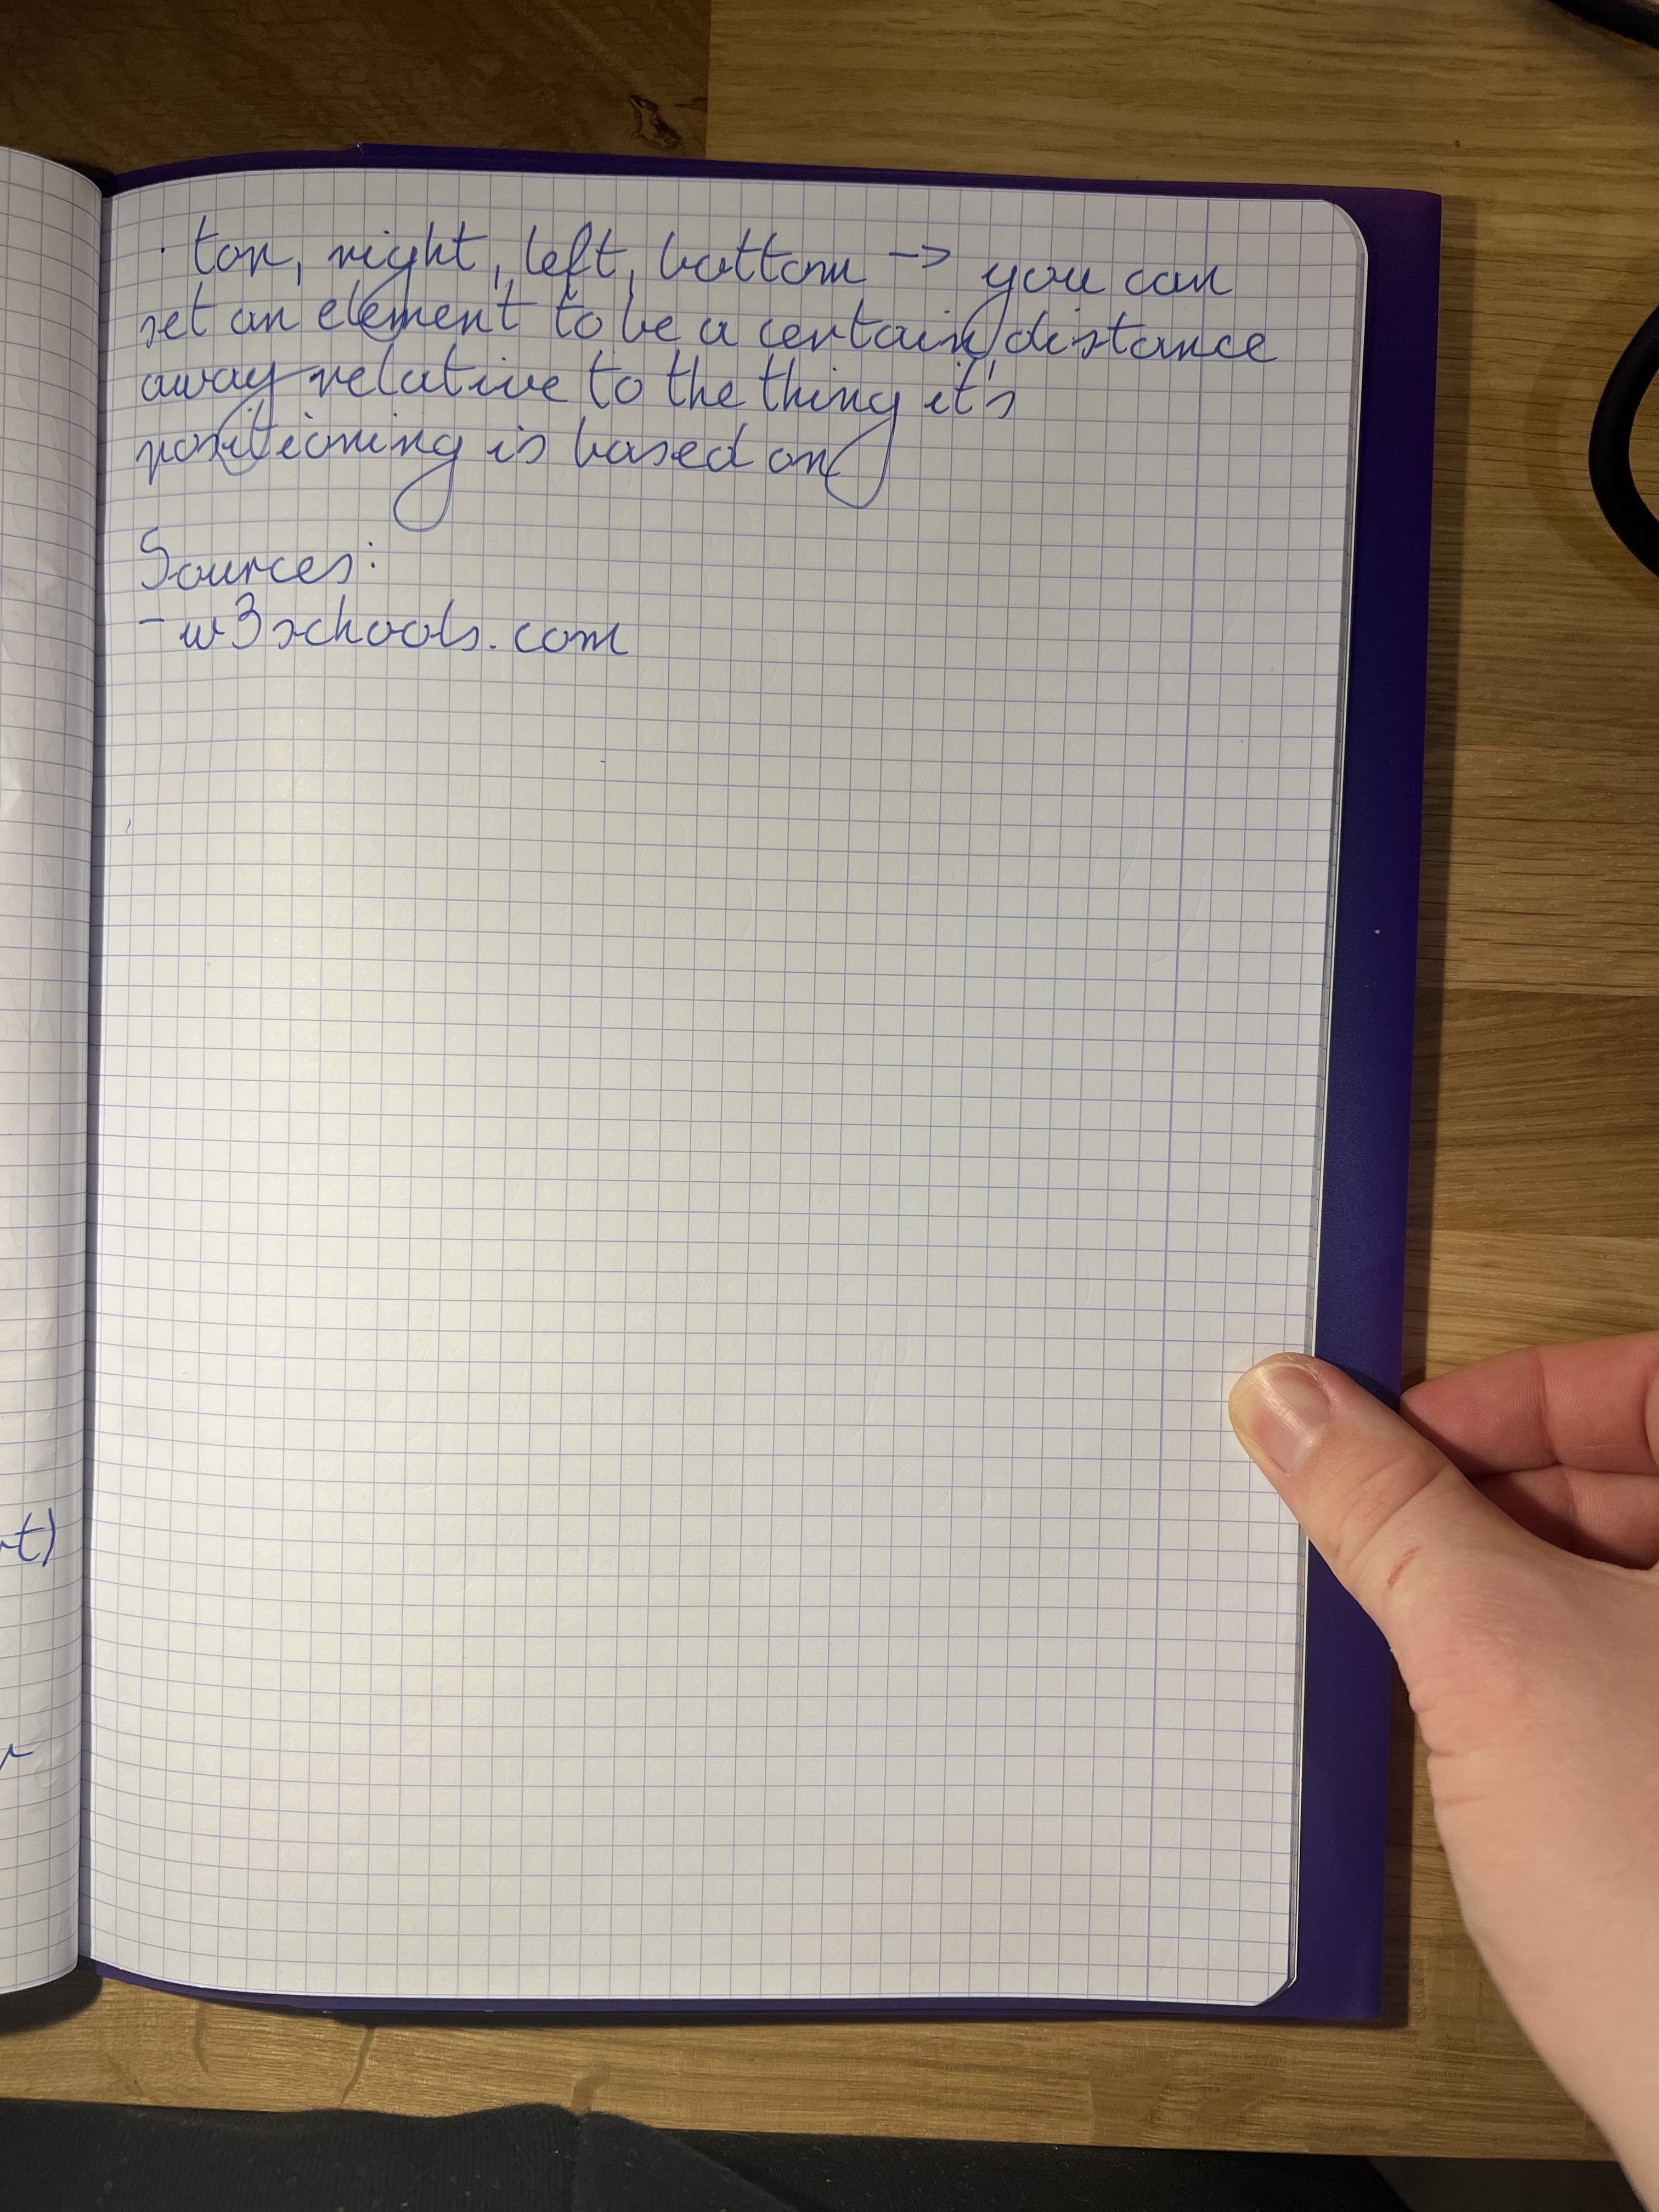 · top, right, left, bottom -> you can
set an element to be a certain distance
away relative to the thing it's
positioning is based on
Sources:
- w3schools.com